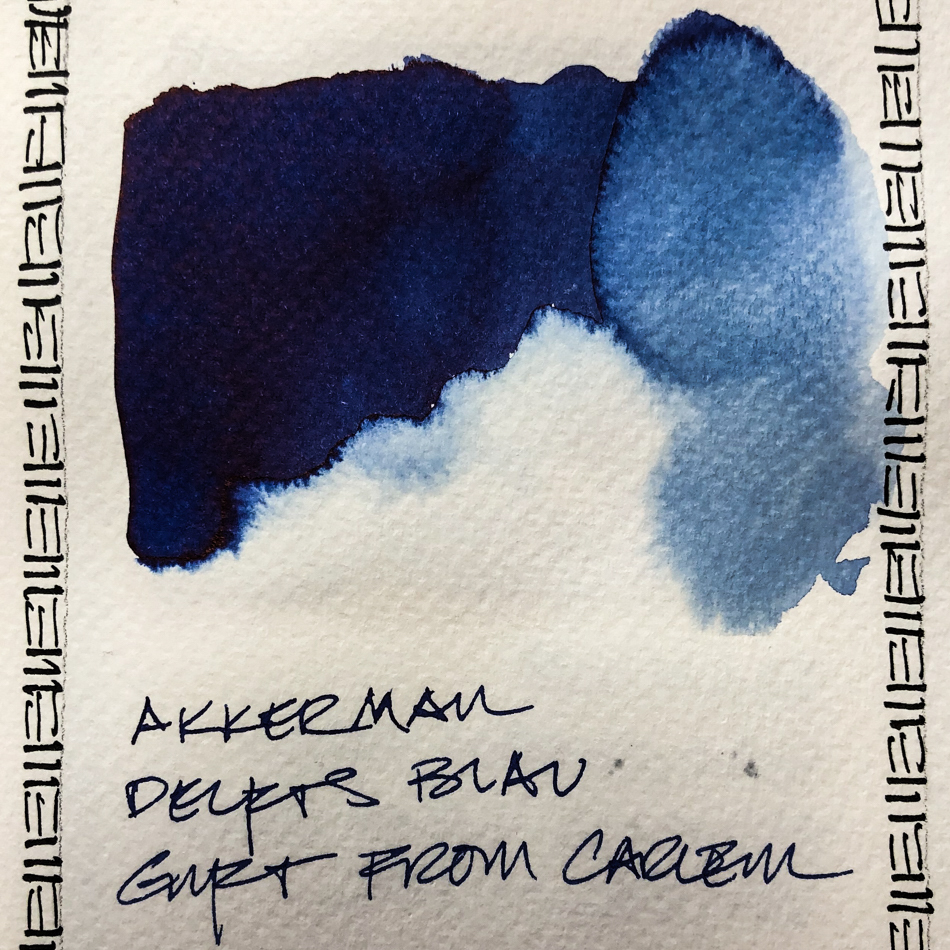 AKKERMAN
DELFTS BLAU
GIFT FROM CARLEEN